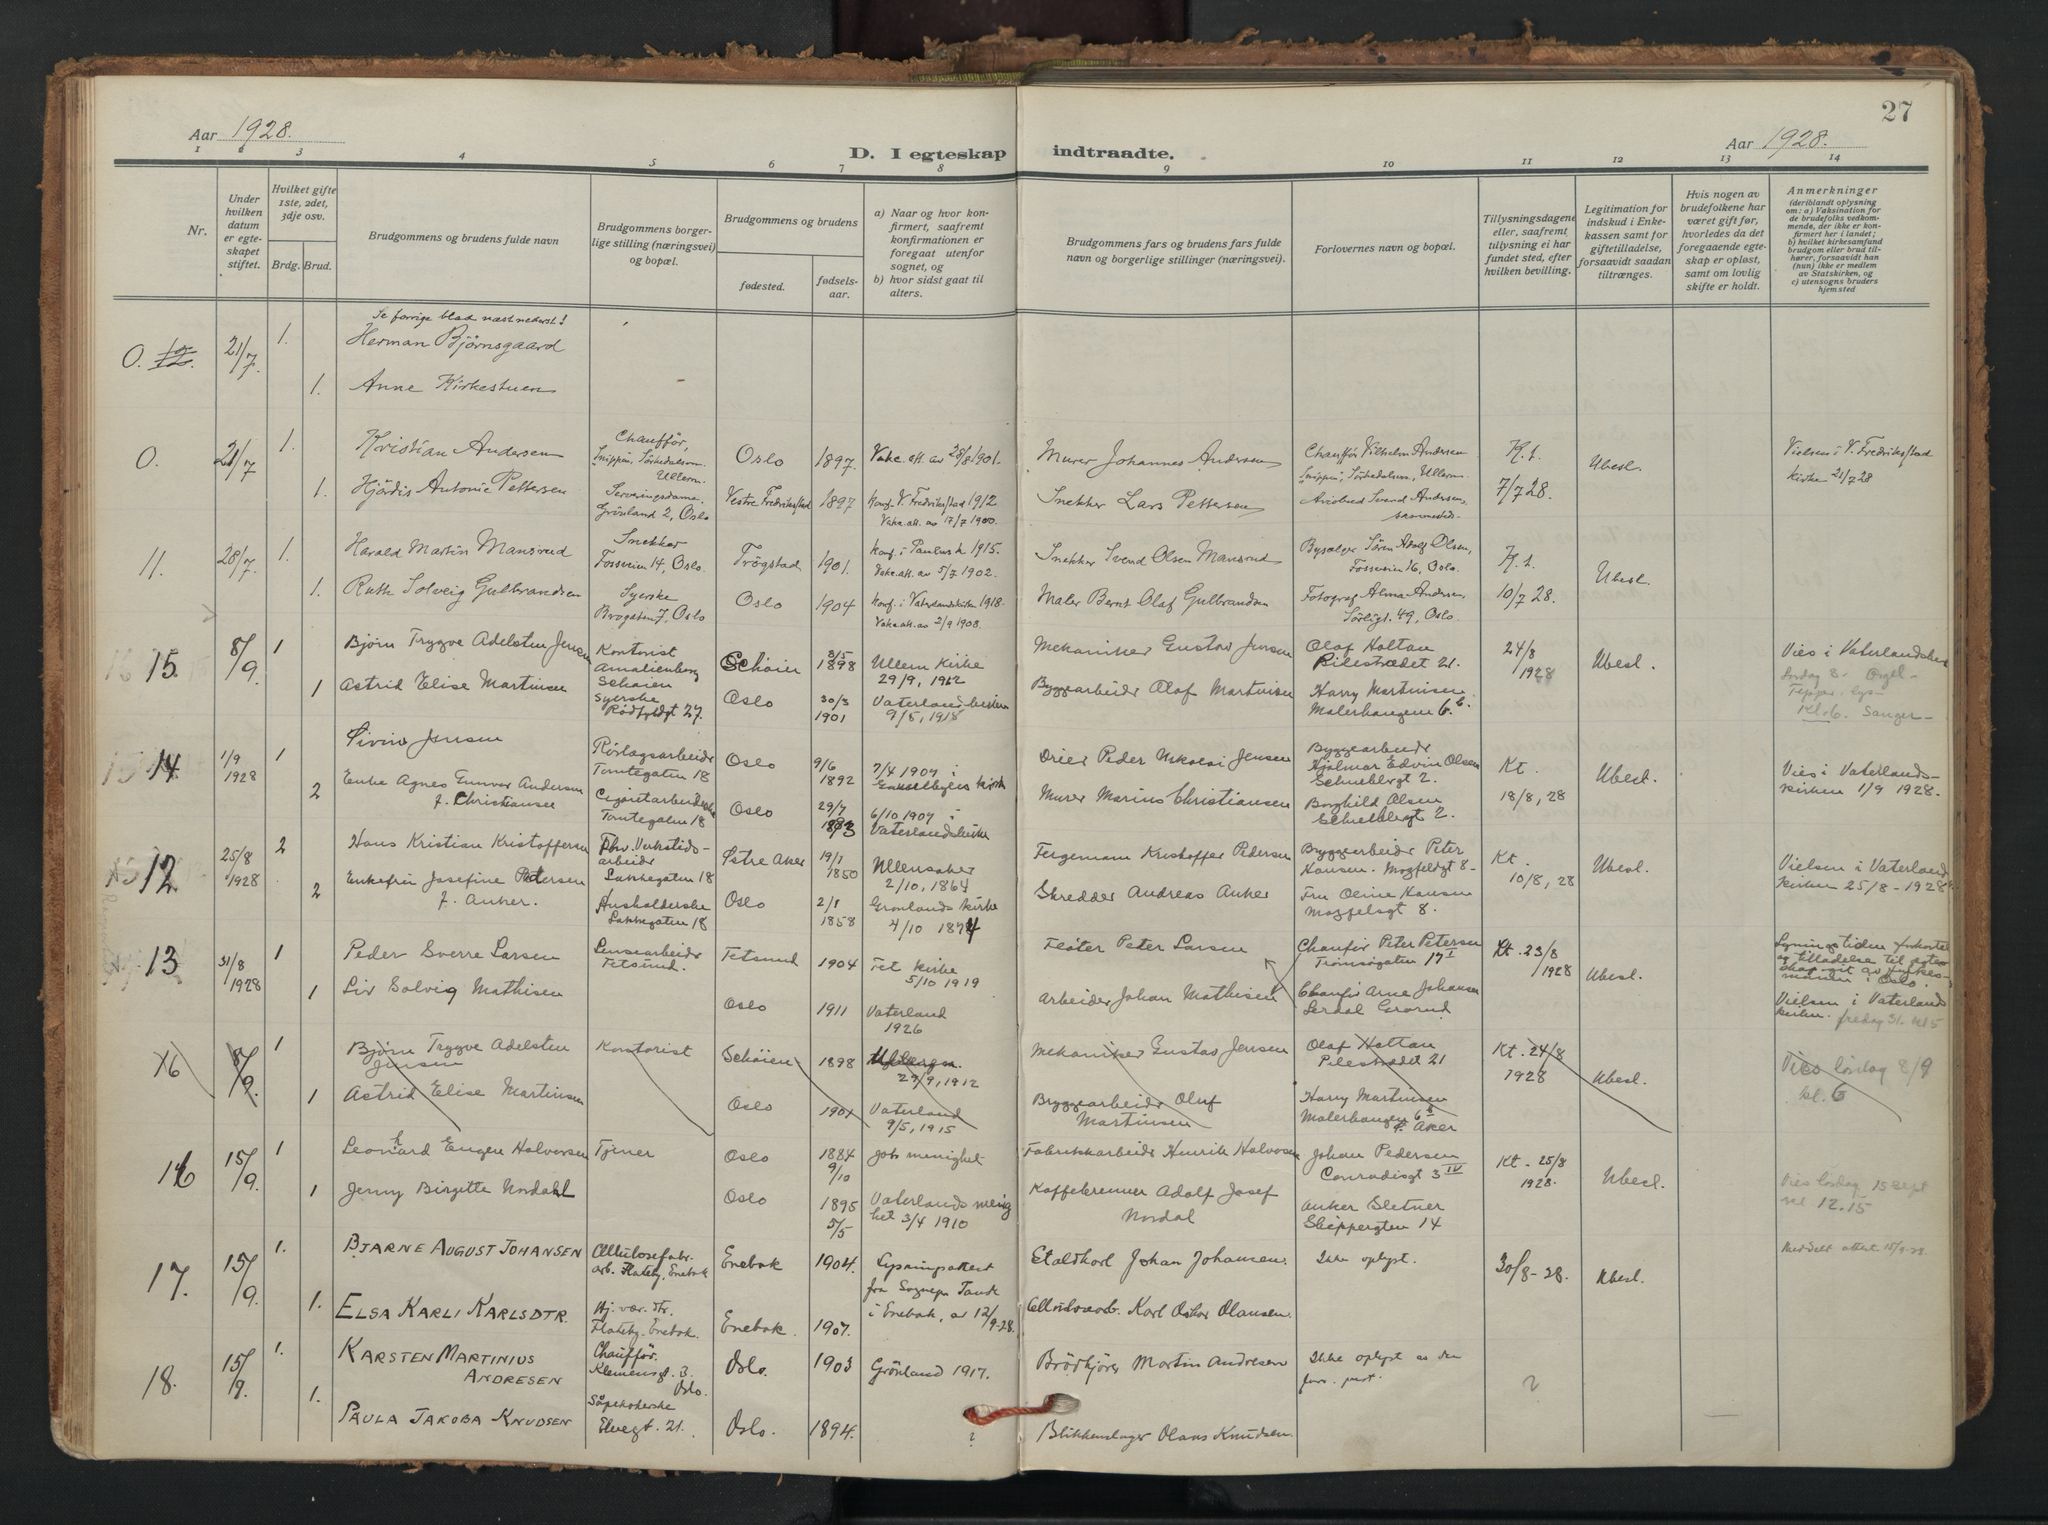 27
Aar 1928.
D. I egteskap indtraadte.
Aar 1928.
1 2 3 4 5 6 7 8 9 10 11 12 13 14
Nr.
Under hvilken datum er egteskapet stiftet.
Hvilket gifte 1ste, 2det, 3dje osv.
Brdg. Brud.
Brudgommens og brudens fulde navn
Brudgommens borgerlige stilling (næringsvei) og bopæl.
Brudgommens og brudens
fødested.
fødselsaar.
a) Naar og hvor konfirmert, saafremt konfirmationen er foregaat utenfor sognet, og
b) hvor sidst gaat til alters.
Brudgommens fars og brudens fars fulde navn og borgerlige stillinger (næringsvei).
Forlovernes navn og bopæl.
Tillysningsdagene eller, saafremt tillysning ei har fundet sted, efter hvilken bevilling.
Legitimation for indskud i Enkekassen samt for giftetilladelse, forsaavidt saadan tiltrænges.
Hvis nogen av brudefolkene har været gift før, hvorledes da det foregaaende egteskap er opløst, samt om lovlig skifte er holdt.
Anmerkninger
(deriblandt oplysning om: a) Vaksination for de brudefolks vedkommende, der ikke er konfirmert her i landet; b) hvilket kirkesamfund brudgom eller brud tilhører, forsaavidt han (hun) ikke er medlem av Statskirken, og c) utensogns bruders hjemsted
Se forrige blad næst nederst!
O. 21/7. 1. Herman Bjørnsgaard
1. Anne Kirkestuen
O. 21/7 1. Kristian Andersen Chauffør, Snippen, Sørkedalsvn. Ullern Oslo 1897. Vakc. att. av 28/8 1901. Murer Johannes Andersen Chauffør Vilhelm Andersen Snippen, Sørkedalsvn, Ullern K. 1. Ubesl. Vielsen i V. Fredrikstad kirke 21/7 28
1. Hjördis Antonie Pettersen Serveringsdame. Grønland 2, Oslo Vestre Fredrikstad 1897 Konf. V. Fredrikstad 1912 Vakc. att. av 17/7 1900. Snekker Lars Pettersen Svend Andersen, 7/7 28.
11. 28/7. 1. Harald Martin Mansrud Snekker Fossveien 14, Oslo. Trøgstad 1901. Konf. i Paulusk 1915. Vakc. att. av 5/7 1902. Snekker Svend Olsen Mansrud Søren Adolf Olsen, Fossveien 16, Oslo. K. 1. Ubesl.
1. Ruth Solveig Gulbrandsen Syerske Brogaten 7, Oslo Oslo 1904 Konf. i Vaterlandskirken 1918. Vakc. att. av 2/9 1908. Maler Bernt Olaf Gulbrandsen Fotograf Alma Andersen, Sörligt. 49, Oslo. 10/7 28.
15. 8/9. 1 Bjørn Trygve Adelsten Jensen Kontorist Amalienberg Schøien Schøien 3/5 1898 Ullern Kirke 29/9, 1912 Mekaniker Gustav Jensen Olaf Holtan Pilestrædet 21. 24/8 1928 Ubesl. Vies i Vaterlandskir
1 Astrid Elise Martinsen Syerske Rødfyldgt 27. Oslo 30/3 1901 Vaterlandskirken 9/5, 1915 Byggearbeider Olaf Martinsen Harry Martinsen Malerhaugen 6 Kl. 6. Sanger-
14. 1/9 1928 1 Øivind Jensen Rørlagsarbeider Tomtegaten 18 Oslo 9/6 1892 7/4 1907 i Drier Peder Nikolai Jensen Byggearbeider Hjalmar Edvin Olsen Schwebbsgt 2. Kt. 18/8, 28 Ubesl. Vies i Vaterlandskirken 1/9 1928.
2 Enke Agnes Gunvor Andersen f. Christiansen Cigaretarbeiderske Tomtegaten 18 Oslo 29/7 1893 6/10 1907 i Vaterlandskirke Murer Marius Christiansen Borghild Olsen Schwebbsgt 2.
12 25/8 1928 2 Hans Kristian Kristoffersen Fhv. Verkstedsarbeider Lakkegaten 18 Østre Aker 19/1 1850 Ullensaker 2/10, 1864 Fergemann Kristoffer Pedersen Bryggearbeider Peter Hansen. Motzfeldgt 8- Kt. 10/8, 28 Ubesl. Vielsen i Vaterlandkirken 25/8 - 1928
2 Enkefru Josefine Petersen f. Anker. Husholderske Lakkegaten 18 Oslo 2/1 1858 Grønlands kirke 4/10 1874 Skredder Andreas Anker Fru Oline Hansen Motzfeldgt 8.
13 31/8 1928 1 Peder Sverre Larsen Lensearbeider Fetsund. Fetsund 1904 Fet Kirke 5/10 1919 Fløter Peter Larsen Chauför Peter Petersen Tromsøgaten 17 I Kt. 23/8 1928 Ubesl. Lysningstiden forkortet og tilladelse til egteskap git av fylkesmanden i Oslo.
1 Liv Solvig Mathisen Oslo 1911 Vaterland 1926 Arbeider Johan Mathisen Chauför Arne Johansen Lerdal Grorud Vielsen i Vaterlands kirken. fredag 31. kl 5
16 8/9. 1 Bjørn Trygve Adelsten Jensen Kontorist Schøien 1898 29/9, 1912 Mekaniker Gustav Jensen Olaf Holtan Pilestrædet 21 Kt. 24/8 1928 Ubesl. Vies lördag 8/9 kl. 6
1 Astrid Elise Martinsen Oslo 1901 Vaterland 9/5, 1915 Bryggearbeider Oluf Martinsen Harry Martinsen Malerhaugen 6 Aker
16 15/9. 1 Leonhard Eugen Halvorsen Tjener Oslo 1884 9/10 Jobs menighet Fabrikkarbeider Henrik Halvorsen Johan Pedersen Conradisgt 3 IV Kt. 25/8 1928. Ubesl. Vies lördag 15 Sept kl 12.15
1 Jenny Birgitte Nordahl Oslo 1895 5/5 Vaterlands menighet 3/4 1910 Kaffebrenner Adolf Josef Nordal Anker Sletner Skippergten 14
17. 15/9. 1. BJARNE AUGUST JOHANSEN Cellulosefabr. arb. Flateby, Enebak Enebak 1904. Lysningsattest fra Sognepr Tande i Enebak, av 12/9-28. Staldkarl Johan Johansen. Ikke oplyst. 30/8-28. Ubesl. Meddelt attest 15/9-28.
1. ELSA KARLI KARLSDTR. Hj. vær. dtr. Flateby, Enebak. Enebak. 1907. Karl Oskar Olausen.
18. 15/9. 1. KARSTEN MARTINIUS ANDRESEN Chauffør. Klemensgt. 3. Oslo. Oslo. 1903 Grönland 1917. Brödkjörer Martin Andresen Ikke oplyst av den forr. prest. ?
1. PAULA JAKOBA KNUDSEN Såpekokerske Elvegt. 21. Oslo. 1894. ? Blikkenslager Olaus Knudsen.